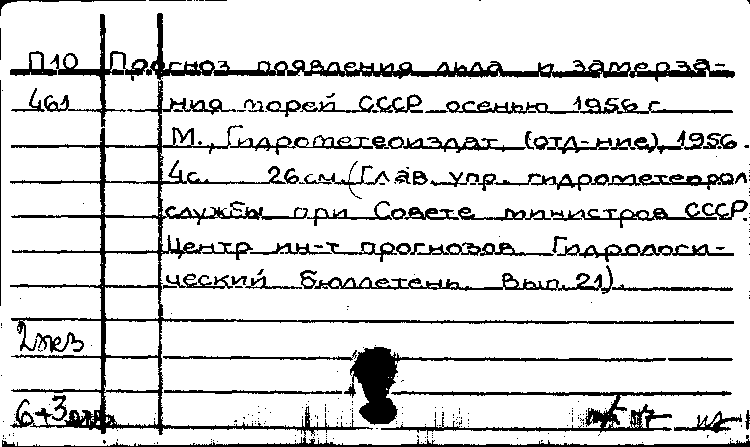 П10 Прогноз появления льда и замерза-
461 ния морей СССР осенью 1956 г.
М., Гидрометеоиздат, (отд-ние), 1956.
4с. 26см. (Глав. упр. гидрометеорол
службы при Совете министров СССР.
Центр ин-т прогнозов. Гидрологи-
ческий бюллетень. Вып. 21).
2 экз
6+3